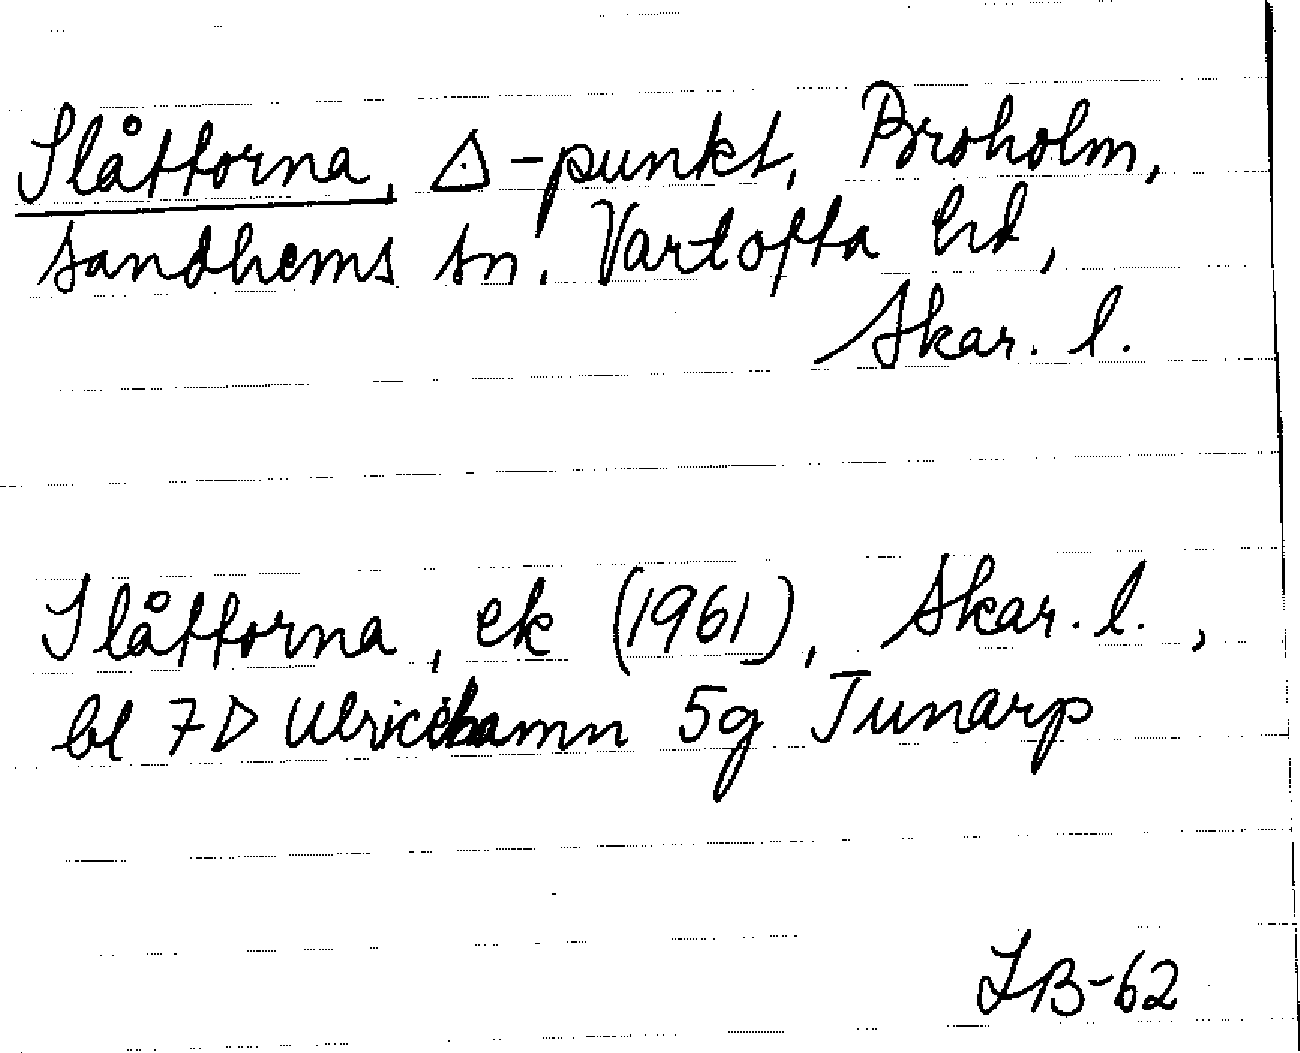 Slåttorna, △-punkt, Broholm,
Sandhems sn. Vartofta hd,
Skar. l.
Slåttorna, ek (1961), Skar. l.,
bl 7D Ulricehamn 5g Junarp
IB-62